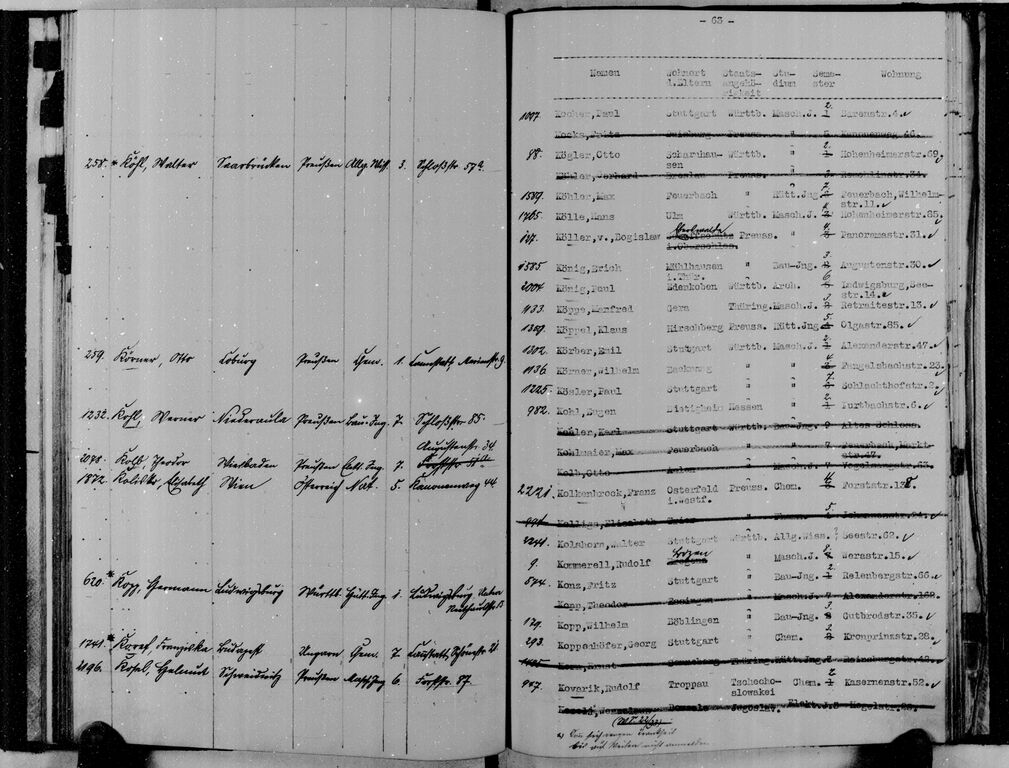 258. * Köhl, Walter Saarbrücken Preußen Allg. Wiss. 3. Schloßstr. 57a
259. Körner, Otto Coburg Preußen Chem. 1. Cannstatt, Marienstr. 9
1232. Kohl, Werner Niederaula Preußen Bau-Ing. 7. Schloßstr. 85
Augustenstr. 34
Kolb, Theodor Wiesbaden Preußen 7.
1872. Elisabeth Wien Österreich Nat. 5. Kanonenweg 44
620. * Kopp, Hermann Ludwigsburg Württb. Hütt. Ing. 1. Ludwigsburg
1241. * Franziska Budapest Ungarn Chem. 7.
2196. Helmut Schweidnitz Preußen Masch. Ing. 6. Forststr. 87
- 63 -
Namen Wohnort Staats- Stu- Seme- Wohnung
d.Eltern angehö- dium ster
rigkeit
2.
1007. Kocher, Paul Stuttgart Württb. Masch.J. 1 Bärenstr.4.
Duisburg Preuss. " 5 Kanonenweg 46.
98. Kögler, Otto Scharnhau- Württb. " 1 Hohenheimerstr.69,
sen
Köhler, Gerhard Breslau Preuss. " Reuchlinstr.34.
1589. Köhler, Max Feuerbach " Hütt.Jng. 7. Feuerbach, Wilhelm-
str.11.
1705. Kölle, Hans Ulm Württb. Masch.J. Hohenheimerstr.85.
107. Köller, v., Bogislaw Preuss. " 4. Panoramastr.31.
i.Oberschles.
3.
1585 König, Erich Mühlhausen " Bau-Jng. Augustenstr.30.
i.Thür.
6.
2004 König, Paul Edenkoben Württb. Arch. 5 Ludwigsburg, See-
str.14.
433. Köppe, Manfred Gera Thüring. Masch.J. Retraitestr.13.
5.
1309. Köppel, Klaus Hirschberg Preuss. Hütt.Jng. Olgastr.85.
1302. Körber, Emil Stuttgart Württb. Masch.J. Alexanderstr.47.
1136 Körner, Wilhelm Backnang " " Fangelsbachstr.23.
1225. Kösler, Paul Stuttgart " " Schlachthofstr.2.
982. Kohl, Eugen Bietigheim Hessen " 1 Furtbachstr.6.
Kohler, Karl Stuttgart Württb. Bau-Jng. 9 Altes Schloss.
Kohlmaier, Max Feuerbach " " 7 Feuerbach, Markt-
str.47.
Kolb, Otto Aalen " Masch.J. 7 Vogelsangstr.63.
2221. Kolkenbrock, Franz Osterfeld Preuss. Chem. Forststr.138.
i.Westf.
5.
Kolliga, Elisabeth " Chem.
2241. Kolshorn, Walter Stuttgart Württb. Allg.Wiss. Seestr.62.
9. Kommerell, Rudolf Bozen " Masch.J. Werastr.15.
2.
574. Konz, Fritz Stuttgart " Bau-Jng. 1 Relenbergstr.66.
Kopp, Theodor Essingen " Masch.J. 7 Alexanderstr.162.
129. Kopp, Wilhelm Böblingen " Bau-Jng. Gutbrodstr.35.
3.
293. Koppenhöfer, Georg Stuttgart " Chem. Kronprinzstr.28.
Korn, Ernst Thüring. Hütt.Jng.
2.
987. Kovarik, Rudolf Troppau Tschecho- Chem. 1 Kasernenstr.52.
slowakei
Jugoslav. Elekt.J.5 Kegelstr.28.